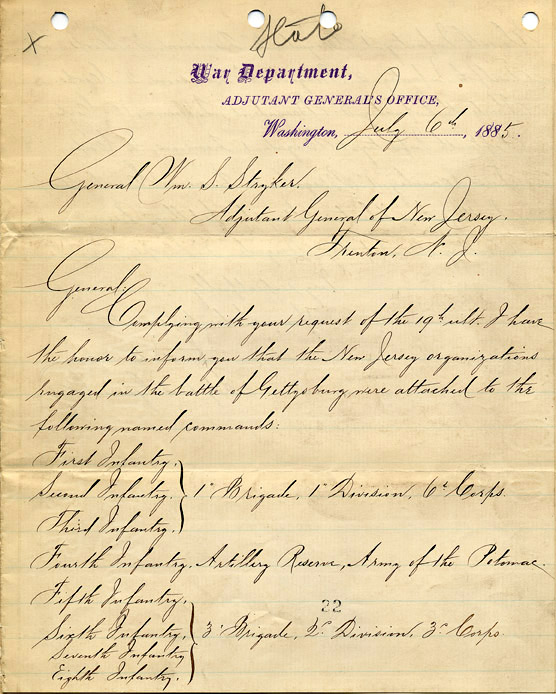 x
State
War Department,
ADJUTANT GENERAL'S OFFICE,
Washington, July 6th, 1885.
General Wm. S. Stryker.
Adjutant General of New Jersey.
Trenton, N. J.
General:
Complying with your request of the 19th ult. I have
the honor to inform you that the New Jersey organizations
engaged in the battle of Gettysburg were attached to the
following named commands:
First Infantry,
Second Infantry, } 1st Brigade, 1st Division, 6th Corps.
Third Infantry,
Fourth Infantry, Artillery Reserve, Army of the Potomac.
Fifth Infantry,
22
Sixth Infantry, } 3d Brigade, 2d Division, 3d Corps.
Seventh Infantry
Eighth Infantry,